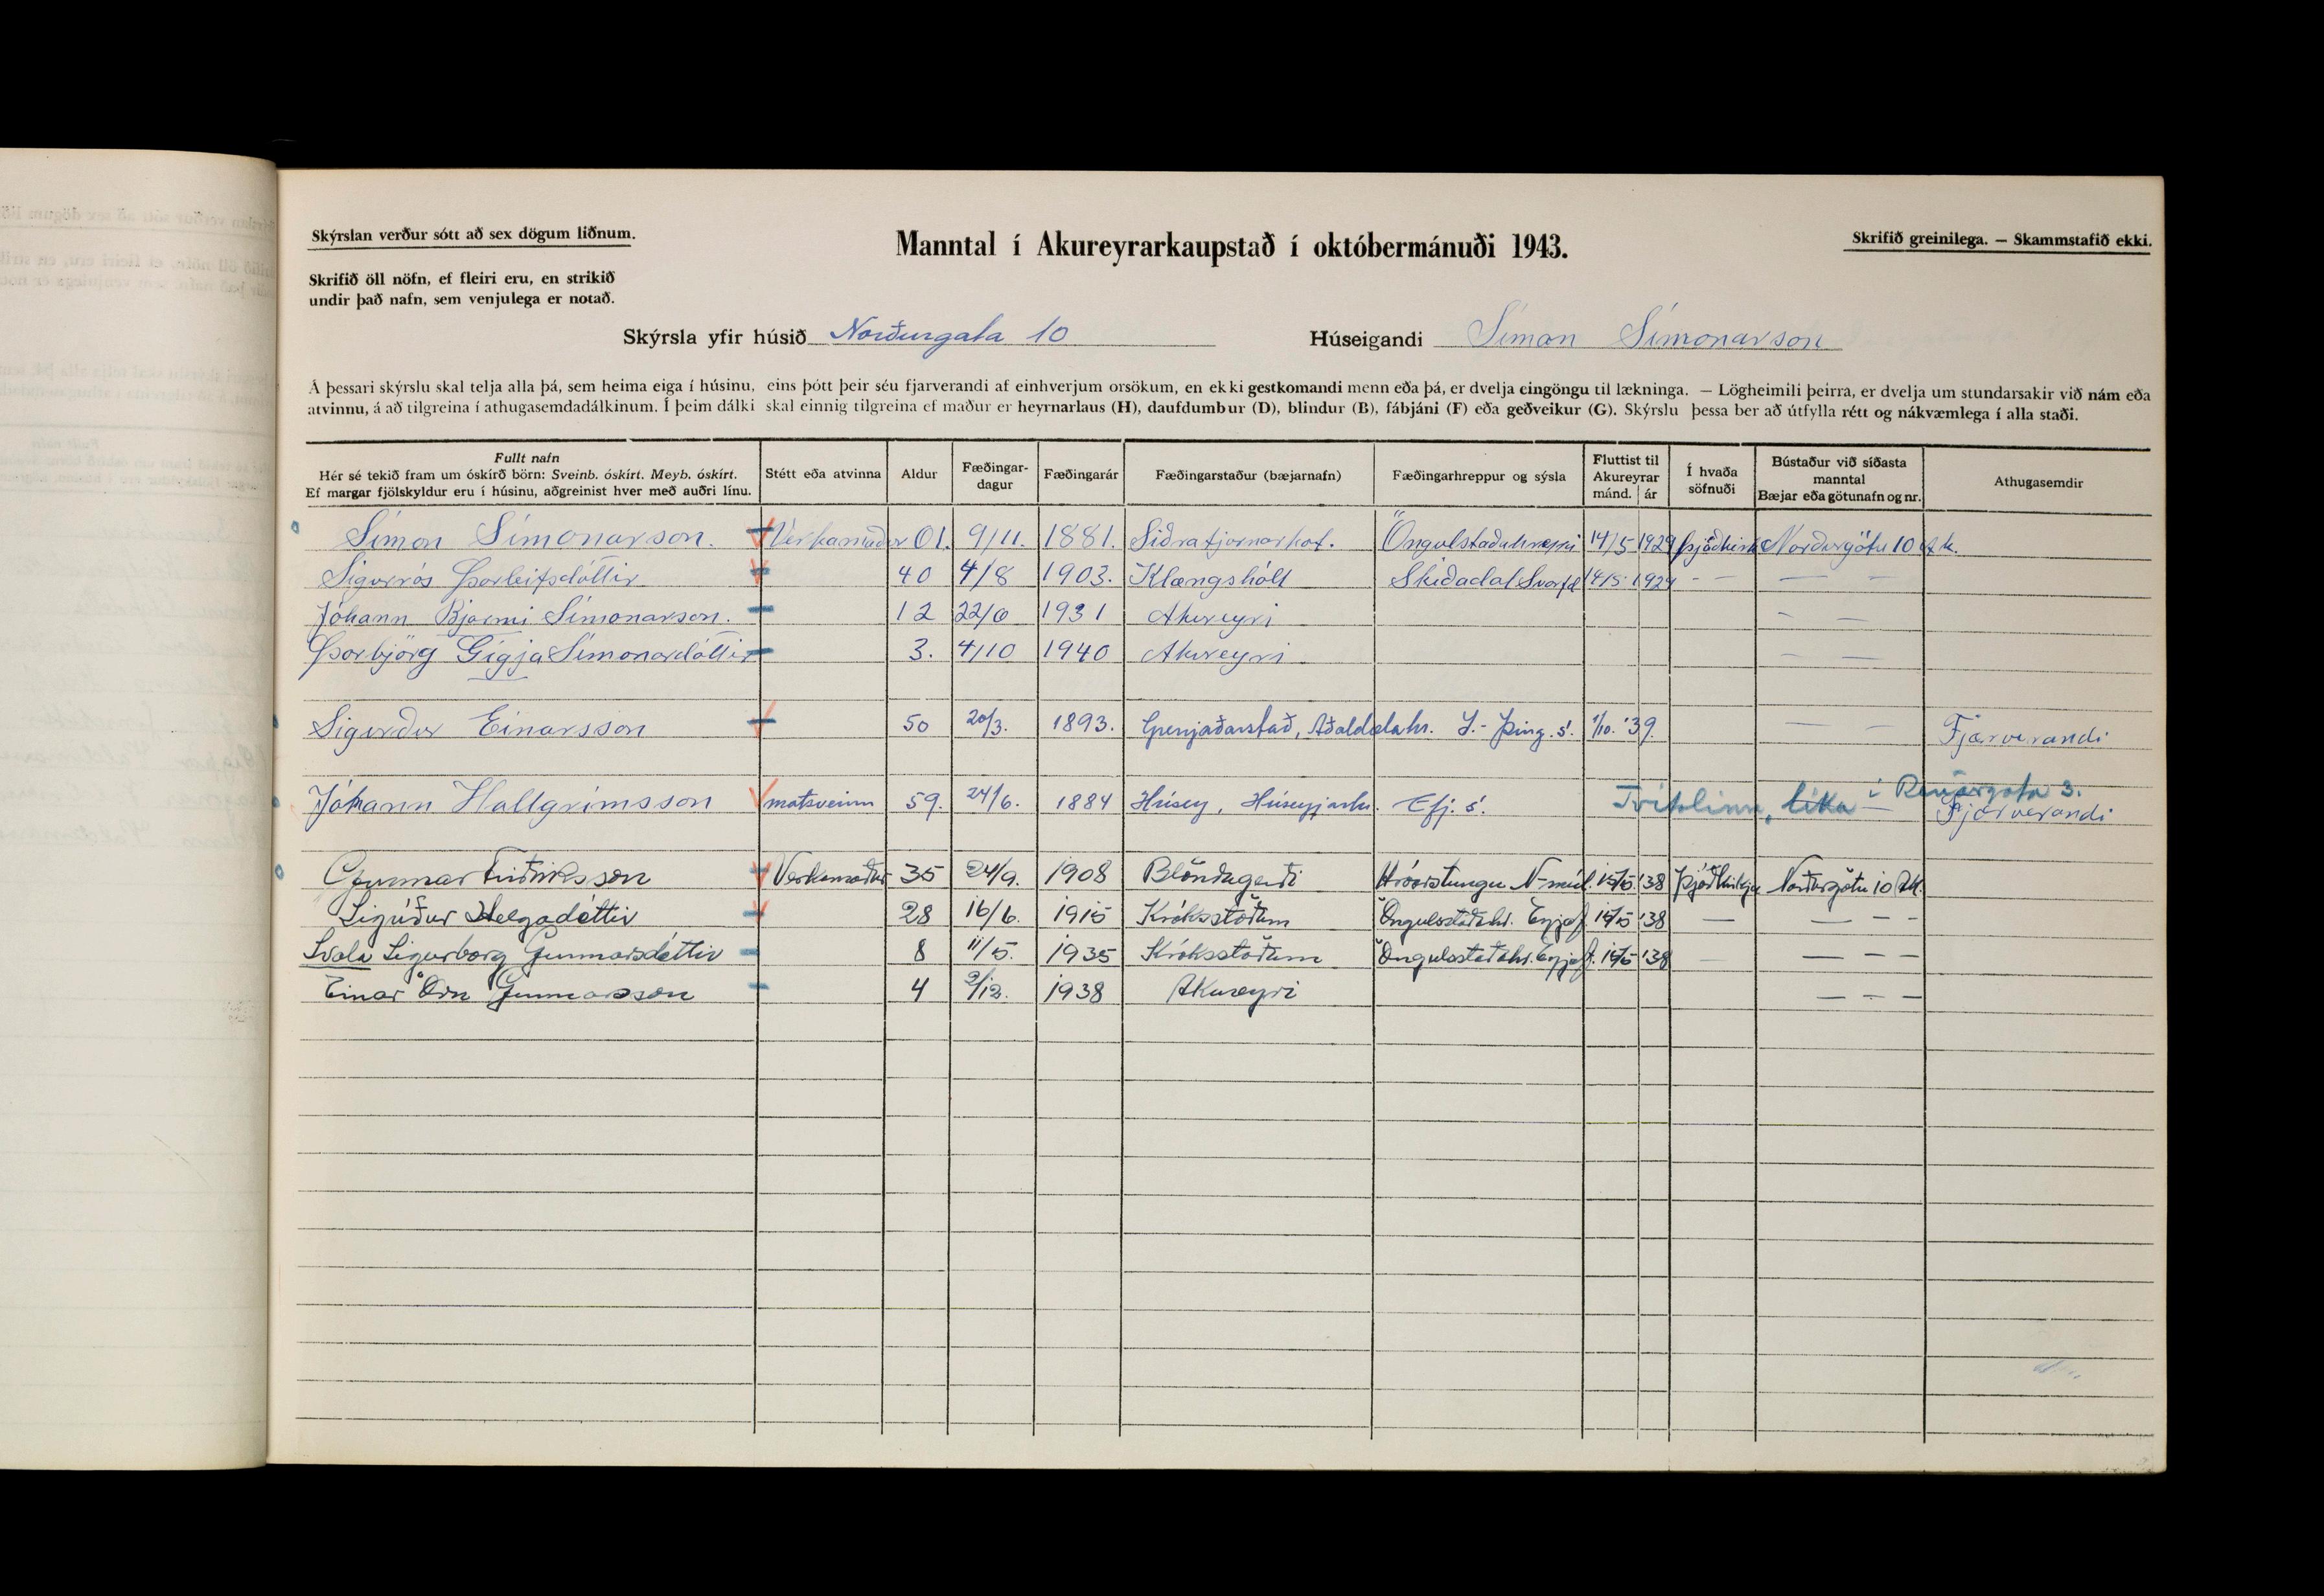 Skýrslan verður sótt að sex dögum liðnum.
Manntal í Akureyrarkaupstað í októbermánuði 1943.
Skrifið greinilega. — Skammstafið ekki.
Skrifið öll nöfn, ef fleiri eru, en strikið
undir það nafn, sem venjulega er notað.
Skýrsla yfir húsið Norðurgata 10 Húseigandi Símon Símonarson
Á þessari skýrslu skal telja alla þá, sem heima eiga í húsinu, eins þótt þeir séu fjarverandi af einhverjum orsökum, en ekki gestkomandi menn eða þá, er dvelja eingöngu til lækninga. — Lögheimili þeirra, er dvelja um stundarsakir við nám eða
atvinnu, á að tilgreina í athugasemdadálkinum. Í þeim dálki skal einnig tilgreina ef maður er heyrnarlaus (H), daufdumbur (D), blindur (B), fábjáni (F) eða geðveikur (G). Skýrslu þessa ber að útfylla rétt og nákvæmlega í alla staði.
Fullt nafn
Hér sé tekið fram um óskírð börn: Sveinb. óskírt. Meyb. óskírt.
Ef margar fjölskyldur eru í húsinu, aðgreinist hver með auðri línu.
Stétt eða atvinna
Aldur
Fæðingar-
dagur
Fæðingarár
Fæðingarstaður (bæjarnafn)
Fæðingarhreppur og sýsla
Fluttist til
Akureyrar
mánd. ár
Í hvaða
söfnuði
Bústaður við síðasta
manntal
Bæjar eða götunafn og nr.
Athugasemdir
Símon Símonarson. Verkamaður 9/11. 1881. Öngulstaðahreppi 14/5 1929 Þjóðkirk Norðurgötu 10 Ak.
Sigurrós Þorleifsdóttir 40 4/8 1903. Klængshóll Skíðadal Svarfd 14/5 1929 - - — —
Jóhann Bjarmi Símonarson. 12 1931 Akureyri - —
Þorbjörg Gígja Símonardóttir 3. 4/10 1940 Akureyri — —
Sigurður Einarsson 50 20/3. 1893. Grenjaðarstað, Aðaldælahr. S.-Þing.s. 1/10. '39. — — Fjærverandi
Jóhann Hallgrímsson matsveinn 59. 24/6. 1884 Húsey, Efj.s. Tvítalinn, líka í Ránargata 3.
Fjærverandi
Gunnar Friðriksson Verkamaður 35 24/9. 1908 Blöndugerði Hróarstungu N-múl. 15/5 '38 Þjóðkirkja Norðurgötu 10 Ak.
Sigríður Helgadóttir 28 16/6. 1915 Króksstöðum Öngulsstaðahr. Eyjaf. 15/5 '38 — — - -
Svala Sigurborg Gunnarsdóttir 8 11/5. 1935 Króksstöðum Öngulsstaðahr. Eyjaf. 15/5 '38 — — - -
Einar Örn Gunnarsson 4 9/12. 1938 Akureyri — - -